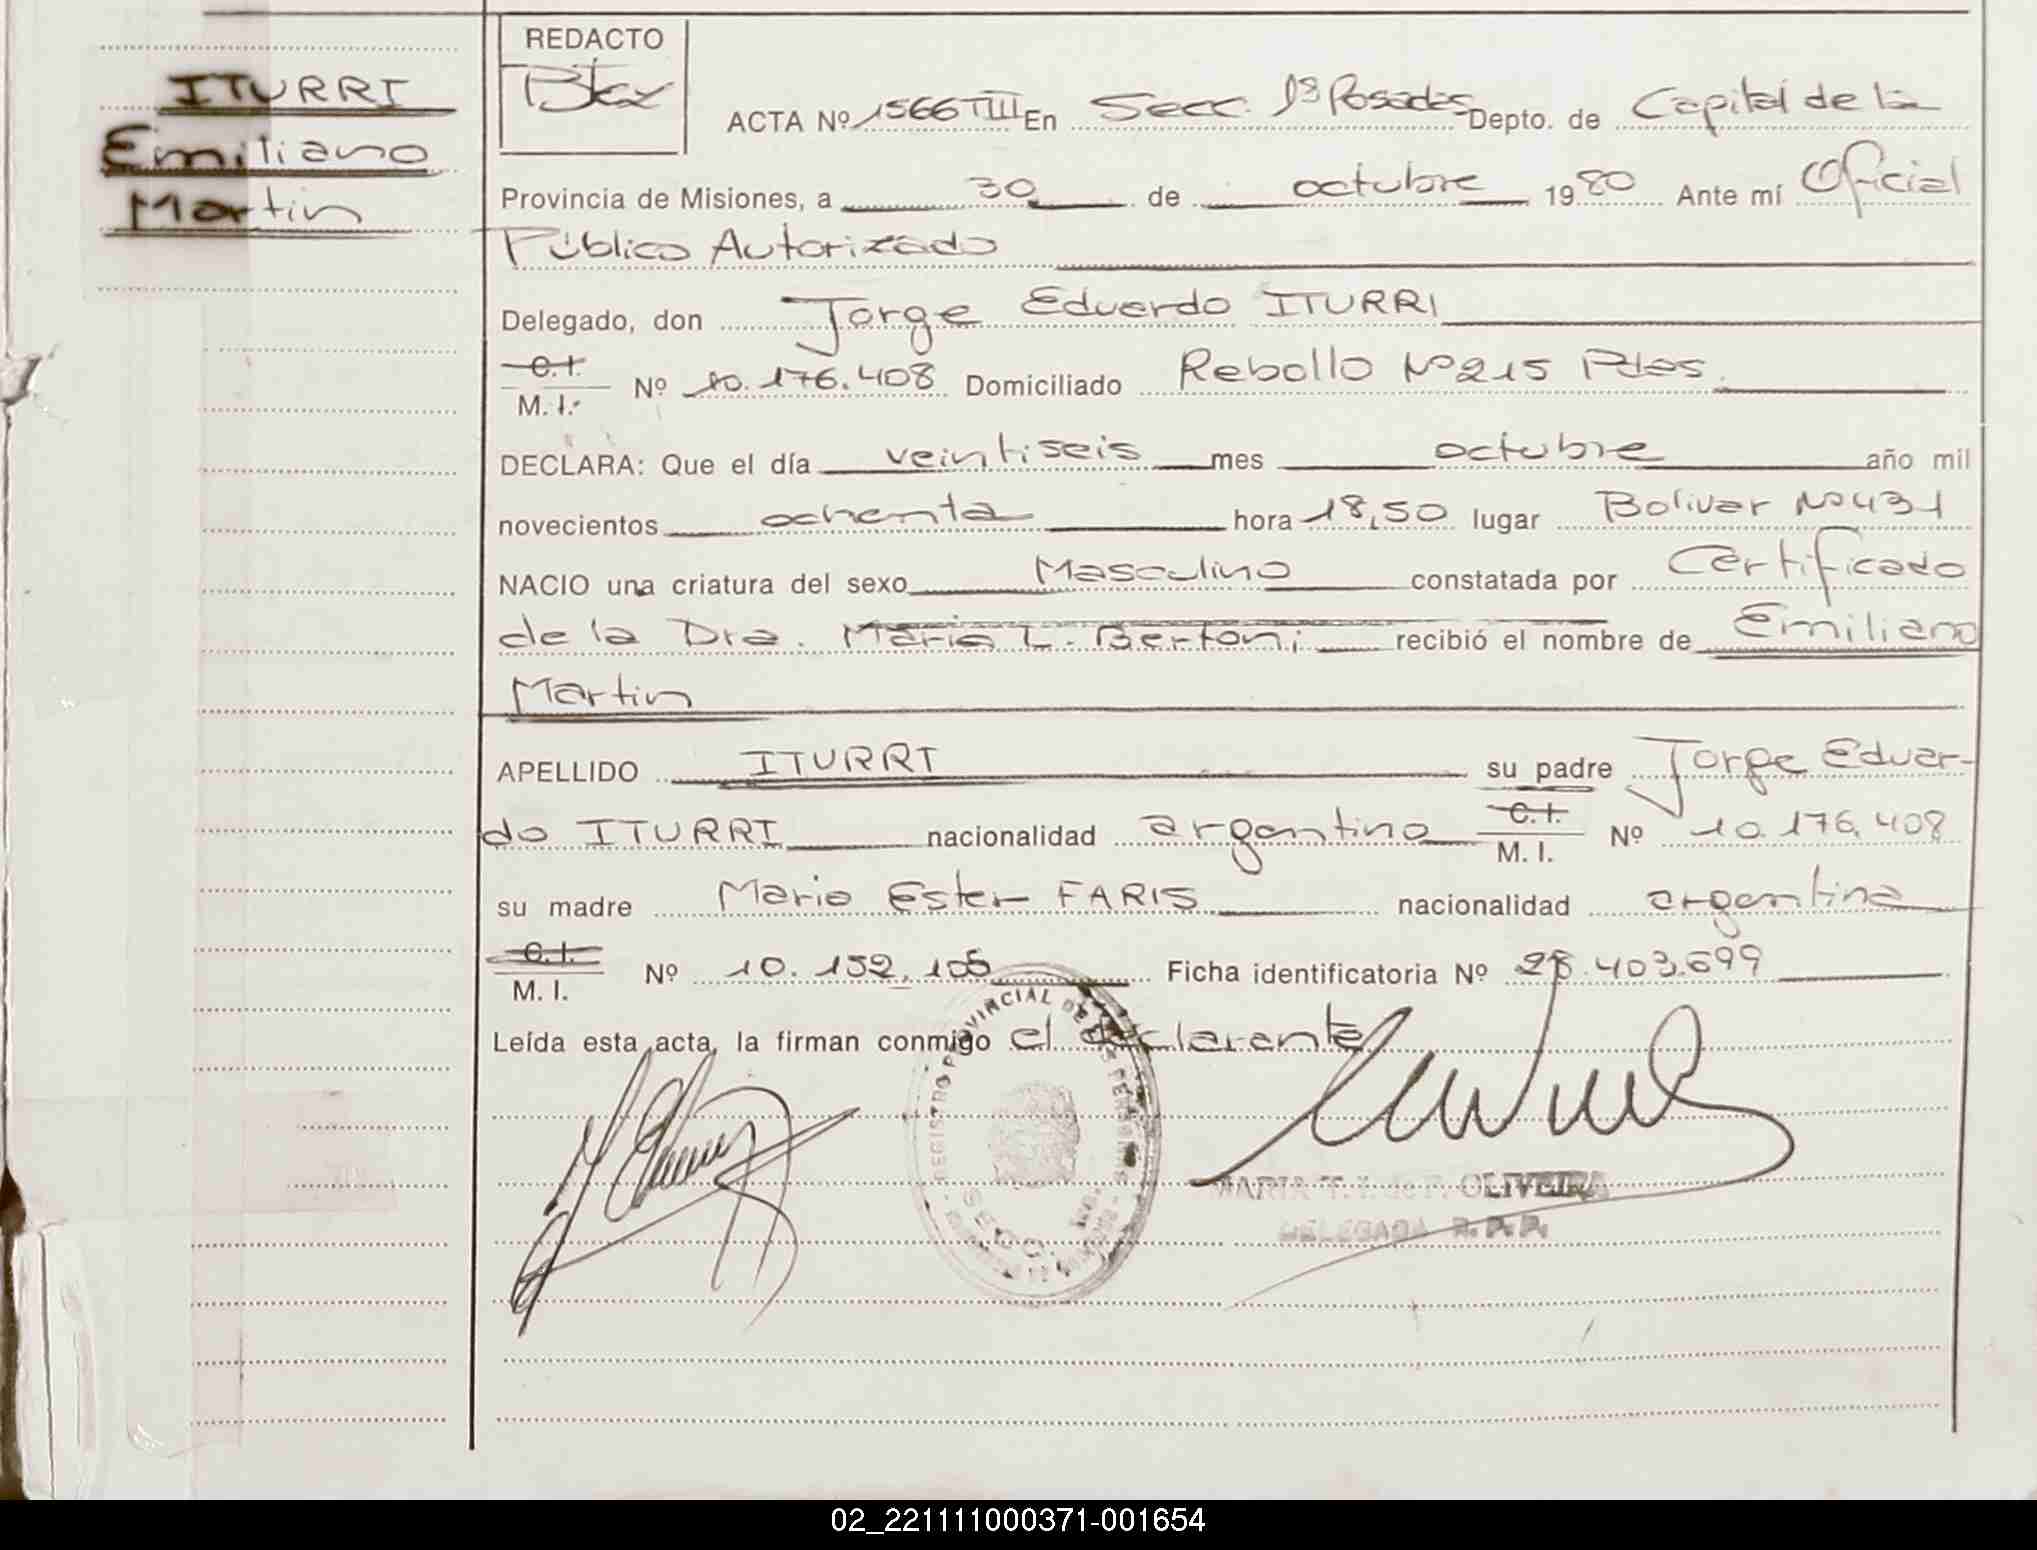 ITURRI
Emiliano
Martin
REDACTO
ACTA Nº 1566 TIII En Secc. 1ª Posadas Depto. de Capital de la
Provincia de Misiones, a 30 de octubre 1980 Ante mí Oficial
Público Autorizado
Delegado, don Jorge Eduardo ITURRI
C.I.
M. I. Nº 10.176.408 Domiciliado Rebollo Nº 215 Pdas.
DECLARA: Que el día veintiseis mes octubre año mil
novecientos ochenta hora 18,50 lugar Bolivar Nº 431
NACIO una criatura del sexo Masculino constatada por Certificado
de la Dra. Maria L. Bertoni recibió el nombre de Emiliano
Martin
APELLIDO ITURRI su padre Jorge Eduar-
do ITURRI nacionalidad argentino C.I. M. I. Nº 10.176.408
su madre Maria Ester FARIS nacionalidad argentina
C.I.
M. I. Nº 10.152.105 Ficha identificatoria Nº 28.403.699
Leída esta acta, la firman conmigo el declarante
REGISTRO PROVINCIAL DE LAS PERSONAS
SECC. 1ra.
MARIA T. OLIVEIRA
DELEGADA R.P.P.
02_221111000371-001654